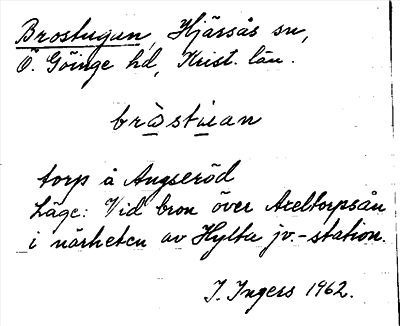 Brostugan, Hjärsås sn,
Ö. Göinge hd, Krist. län.
bròstúan
torp å Angseröd
Läge: Vid bron över Axeltorpsån
i närheten av Hylta jv.-station.
I. Ingers 1962.